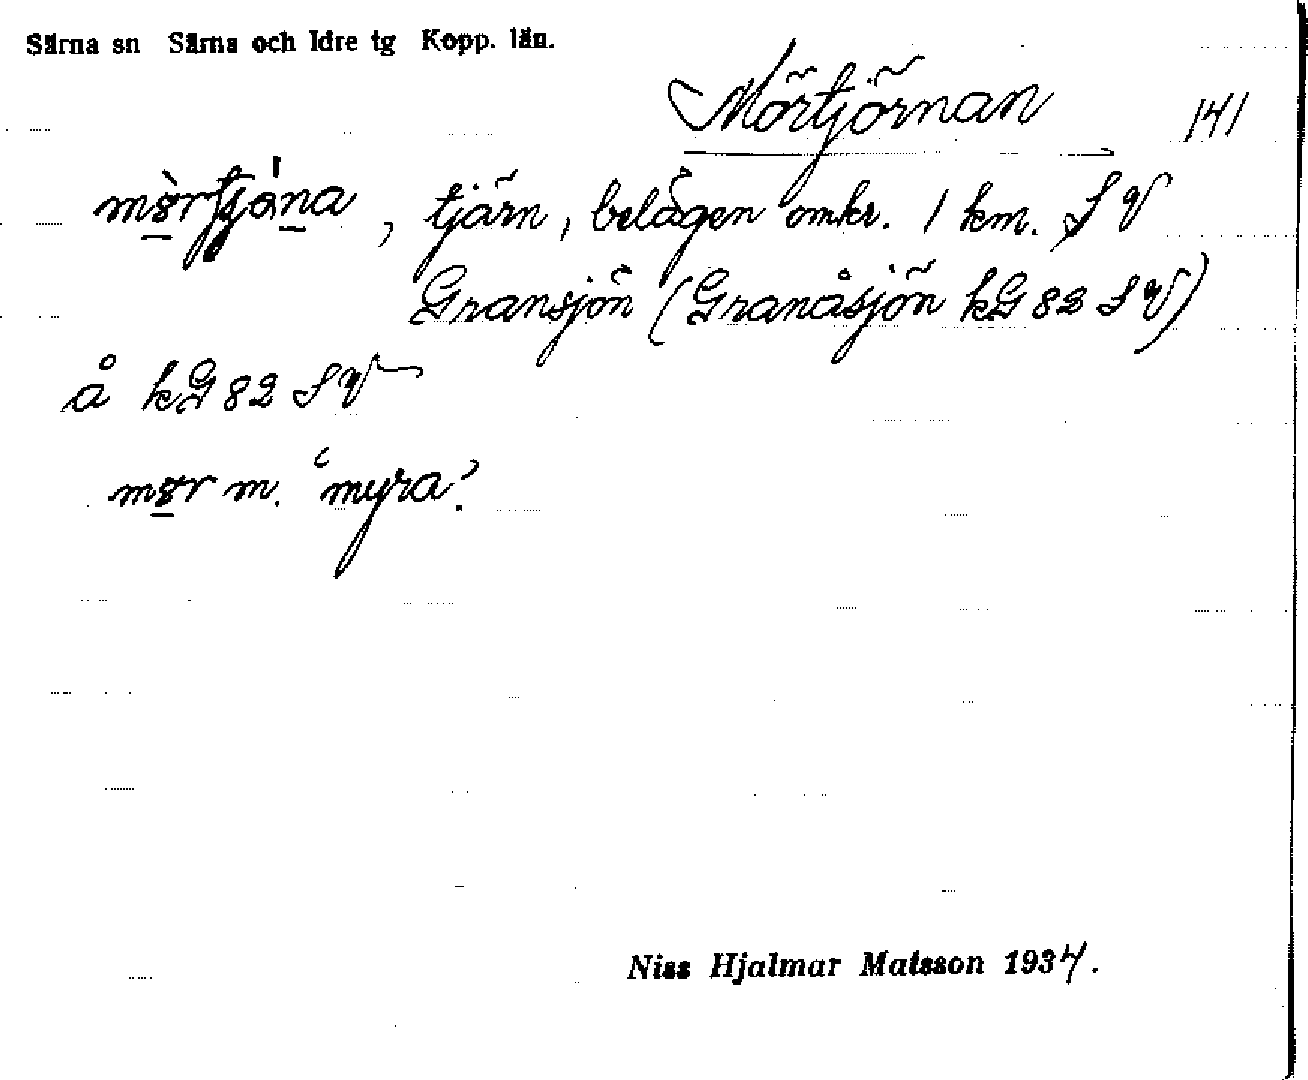 Särna sn Särna och Idre tg Kopp. län.
Mörtjörnan 141
tjärn, belägen omkr. 1 km. SV
Gransjön (Granåsjön kG 82 SV)
å kG 82 SV
m. "myra".
Niss Hjalmar Matsson 1934.